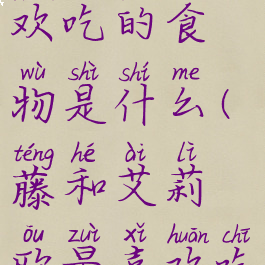 欢吃的食
wù shì shí me
物是什么(
téng hé ài lì
藤和艾莉
ōu zuì xǐ huān chī
欧最喜欢吃